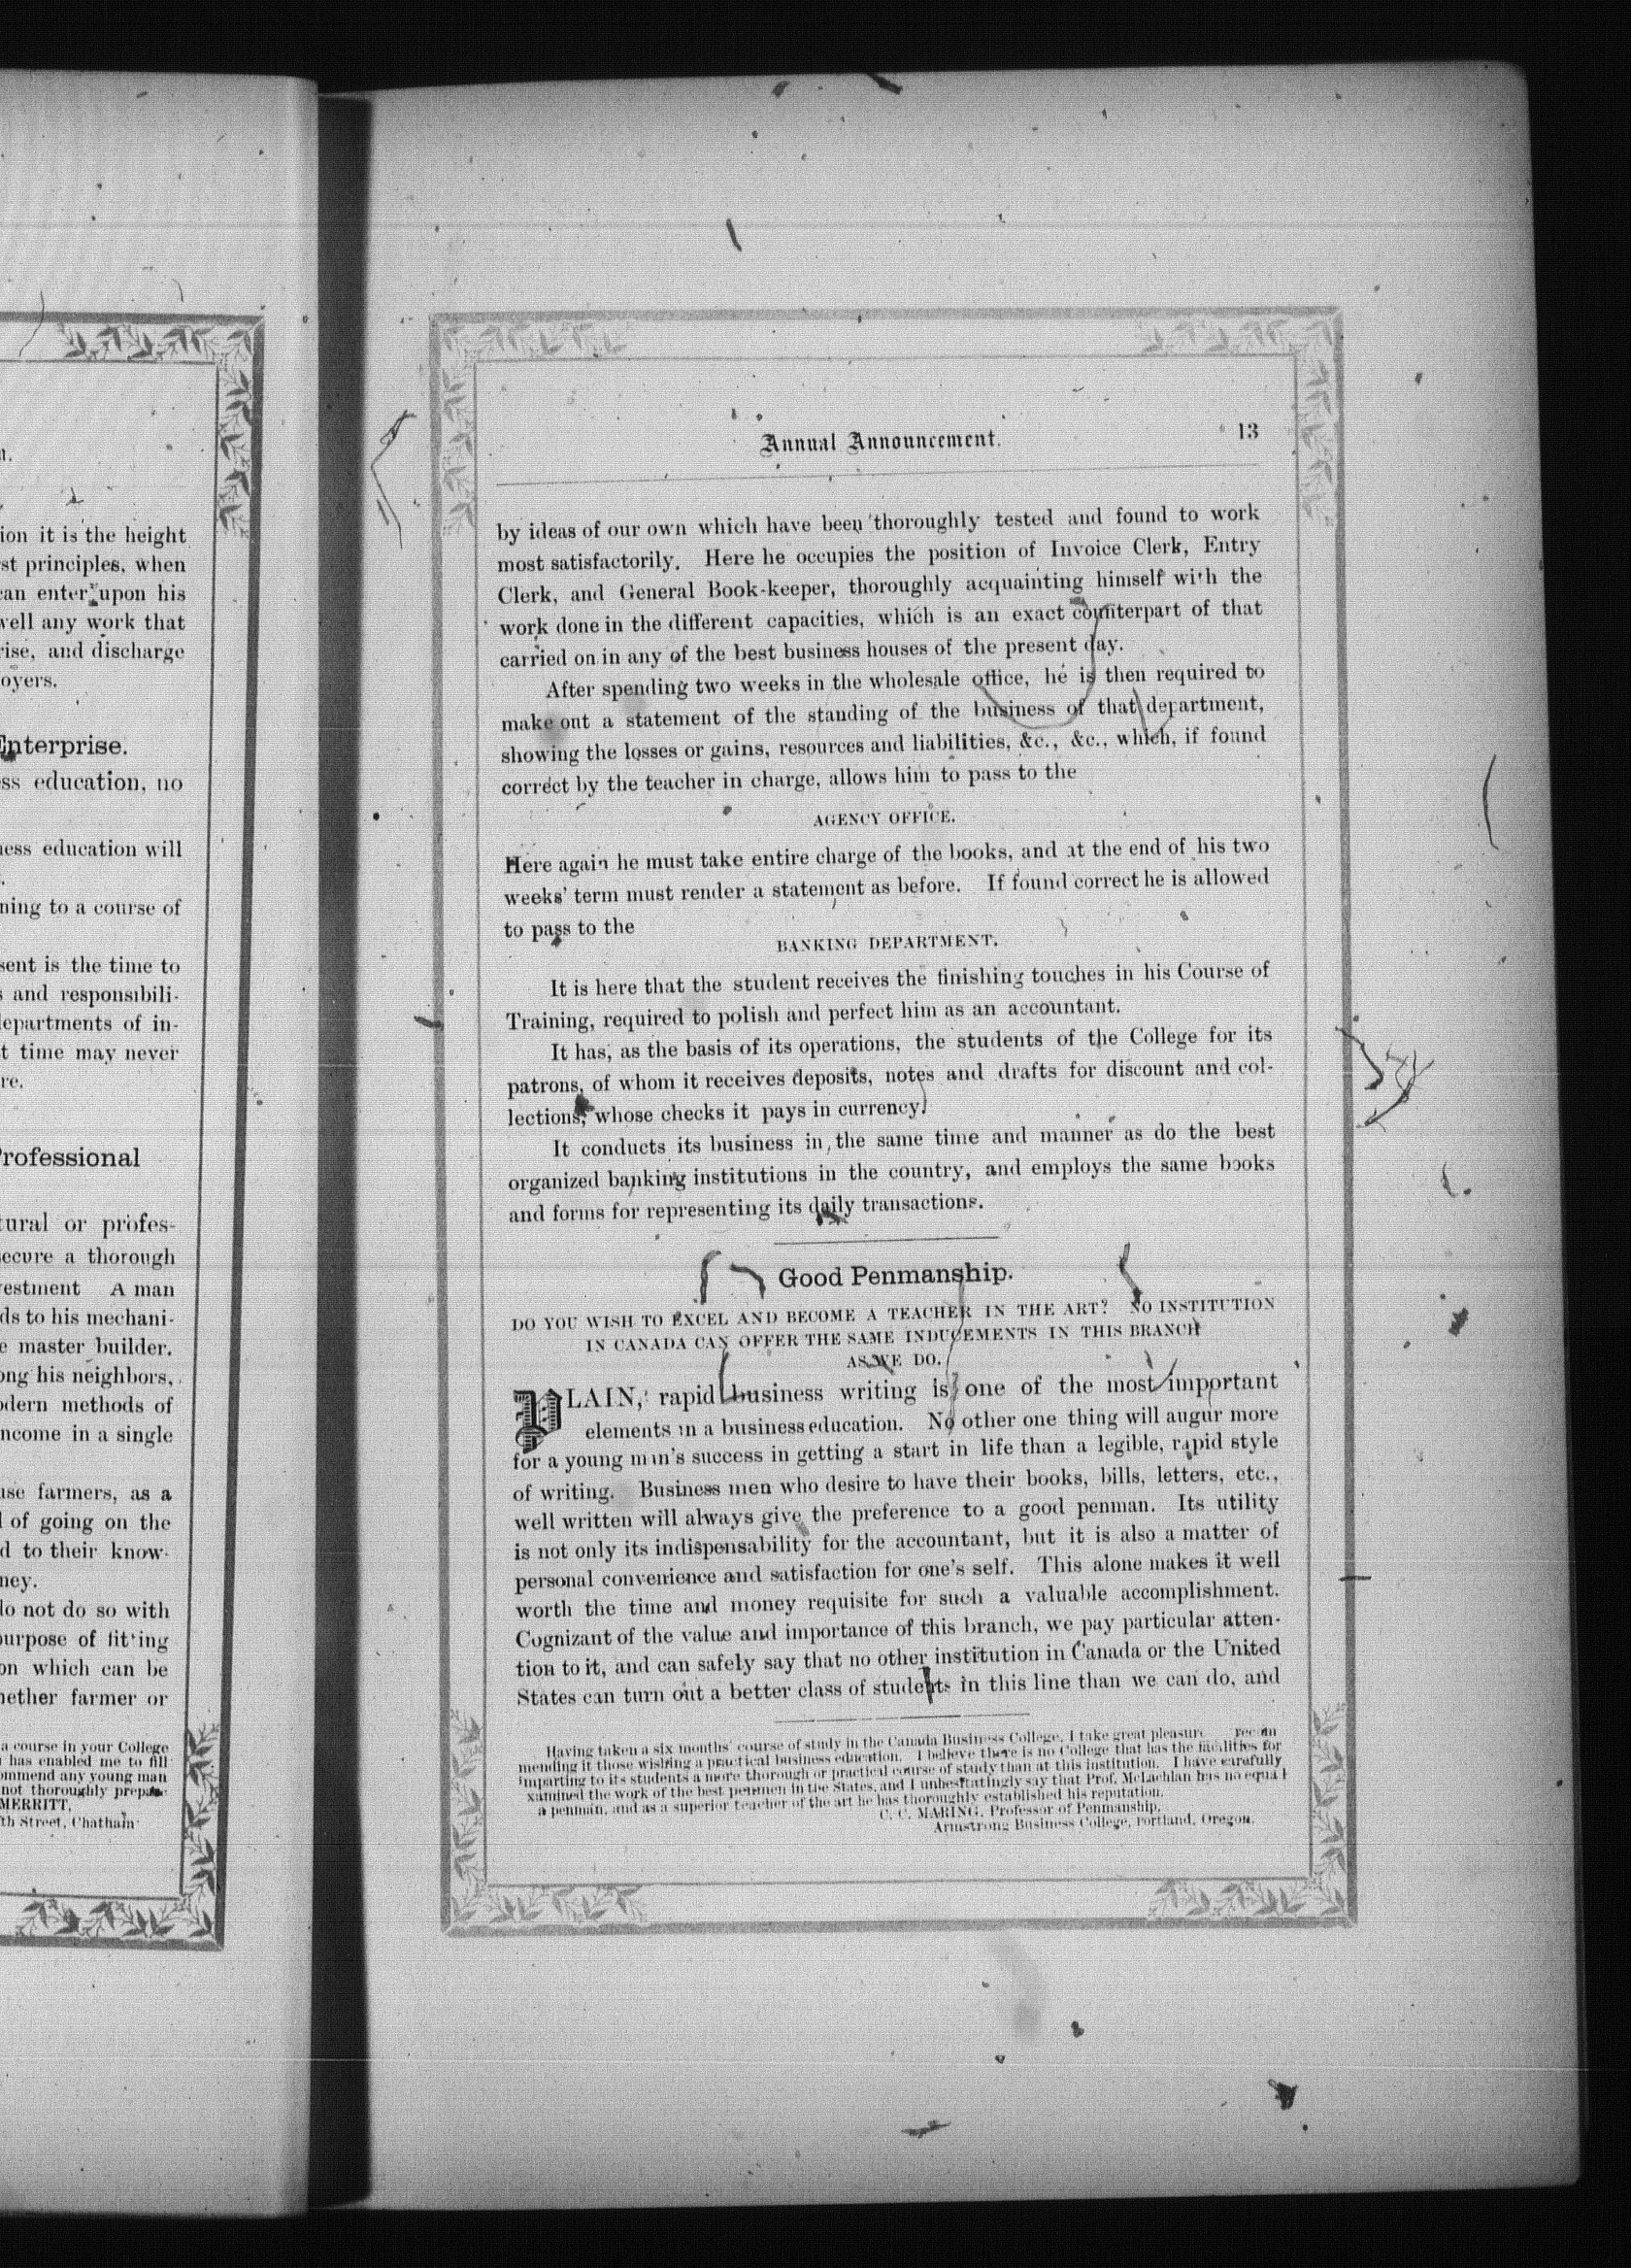 ion it is the height
st principles, when
can enter upon his
well any work that
rise, and discharge
oyers.
Enterprise.
ss education, no
ness education will
ning to a course of
sent is the time to
s and responsibili-
departments of in-
t time may never
re.
Professional
tural or profes-
secure a thorough
vestment A man
ds to his mechani-
e master builder.
ong his neighbors,
odern methods of
ncome in a single
use farmers, as a
l of going on the
d to their know-
ney.
do not do so with
purpose of fitting
on which can be
hether farmer or
a course in your College
has enabled me to fill
ommend any young man
not thoroughly prepare
MERRITT,
th Street, Chatham
Annual Announcement. 13
by ideas of our own which have been thoroughly tested and found to work
most satisfactorily. Here he occupies the position of Invoice Clerk, Entry
Clerk, and General Book-keeper, thoroughly acquainting himself with the
work done in the different capacities, which is an exact counterpart of that
carried on in any of the best business houses of the present day.
After spending two weeks in the wholesale office, he is then required to
make out a statement of the standing of the business of that department,
showing the losses or gains, resources and liabilities, &c., &c., which, if found
correct by the teacher in charge, allows him to pass to the
AGENCY OFFICE.
Here again he must take entire charge of the books, and at the end of his two
weeks' term must render a statement as before. If found correct he is allowed
to pass to the
BANKING DEPARTMENT.
It is here that the student receives the finishing touches in his Course of
Training, required to polish and perfect him as an accountant.
It has, as the basis of its operations, the students of the College for its
patrons, of whom it receives deposits, notes and drafts for discount and col-
lections, whose checks it pays in currency.
It conducts its business in the same time and manner as do the best
organized banking institutions in the country, and employs the same books
and forms for representing its daily transactions.
Good Penmanship.
DO YOU WISH TO EXCEL AND BECOME A TEACHER IN THE ART? NO INSTITUTION
IN CANADA CAN OFFER THE SAME INDUCEMENTS IN THIS BRANCH
AS WE DO.
PLAIN, rapid business writing is one of the most important
elements in a business education. No other one thing will augur more
for a young man's success in getting a start in life than a legible, rapid style
of writing. Business men who desire to have their books, bills, letters, etc.,
well written will always give the preference to a good penman. Its utility
is not only its indispensability for the accountant, but it is also a matter of
personal convenience and satisfaction for one's self. This alone makes it well
worth the time and money requisite for such a valuable accomplishment.
Cognizant of the value and importance of this branch, we pay particular atten-
tion to it, and can safely say that no other institution in Canada or the United
States can turn out a better class of students in this line than we can do, and
Having taken a six months' course of study in the Canada Business College, I take great pleasure recom
mending it those wishing a practical business education. I believe there is no College that has the facilities for
imparting to its students a more thorough or practical course of study than at this institution. I have carefully
xamined the work of the best penmen in the States, and I unhesitatingly say that Prof. McLachlan has no equal
a penman, and as a superior teacher of the art he has thoroughly established his reputation.
C. C. MARING, Professor of Penmanship,
Armstrong Business College, Portland, Oregon.